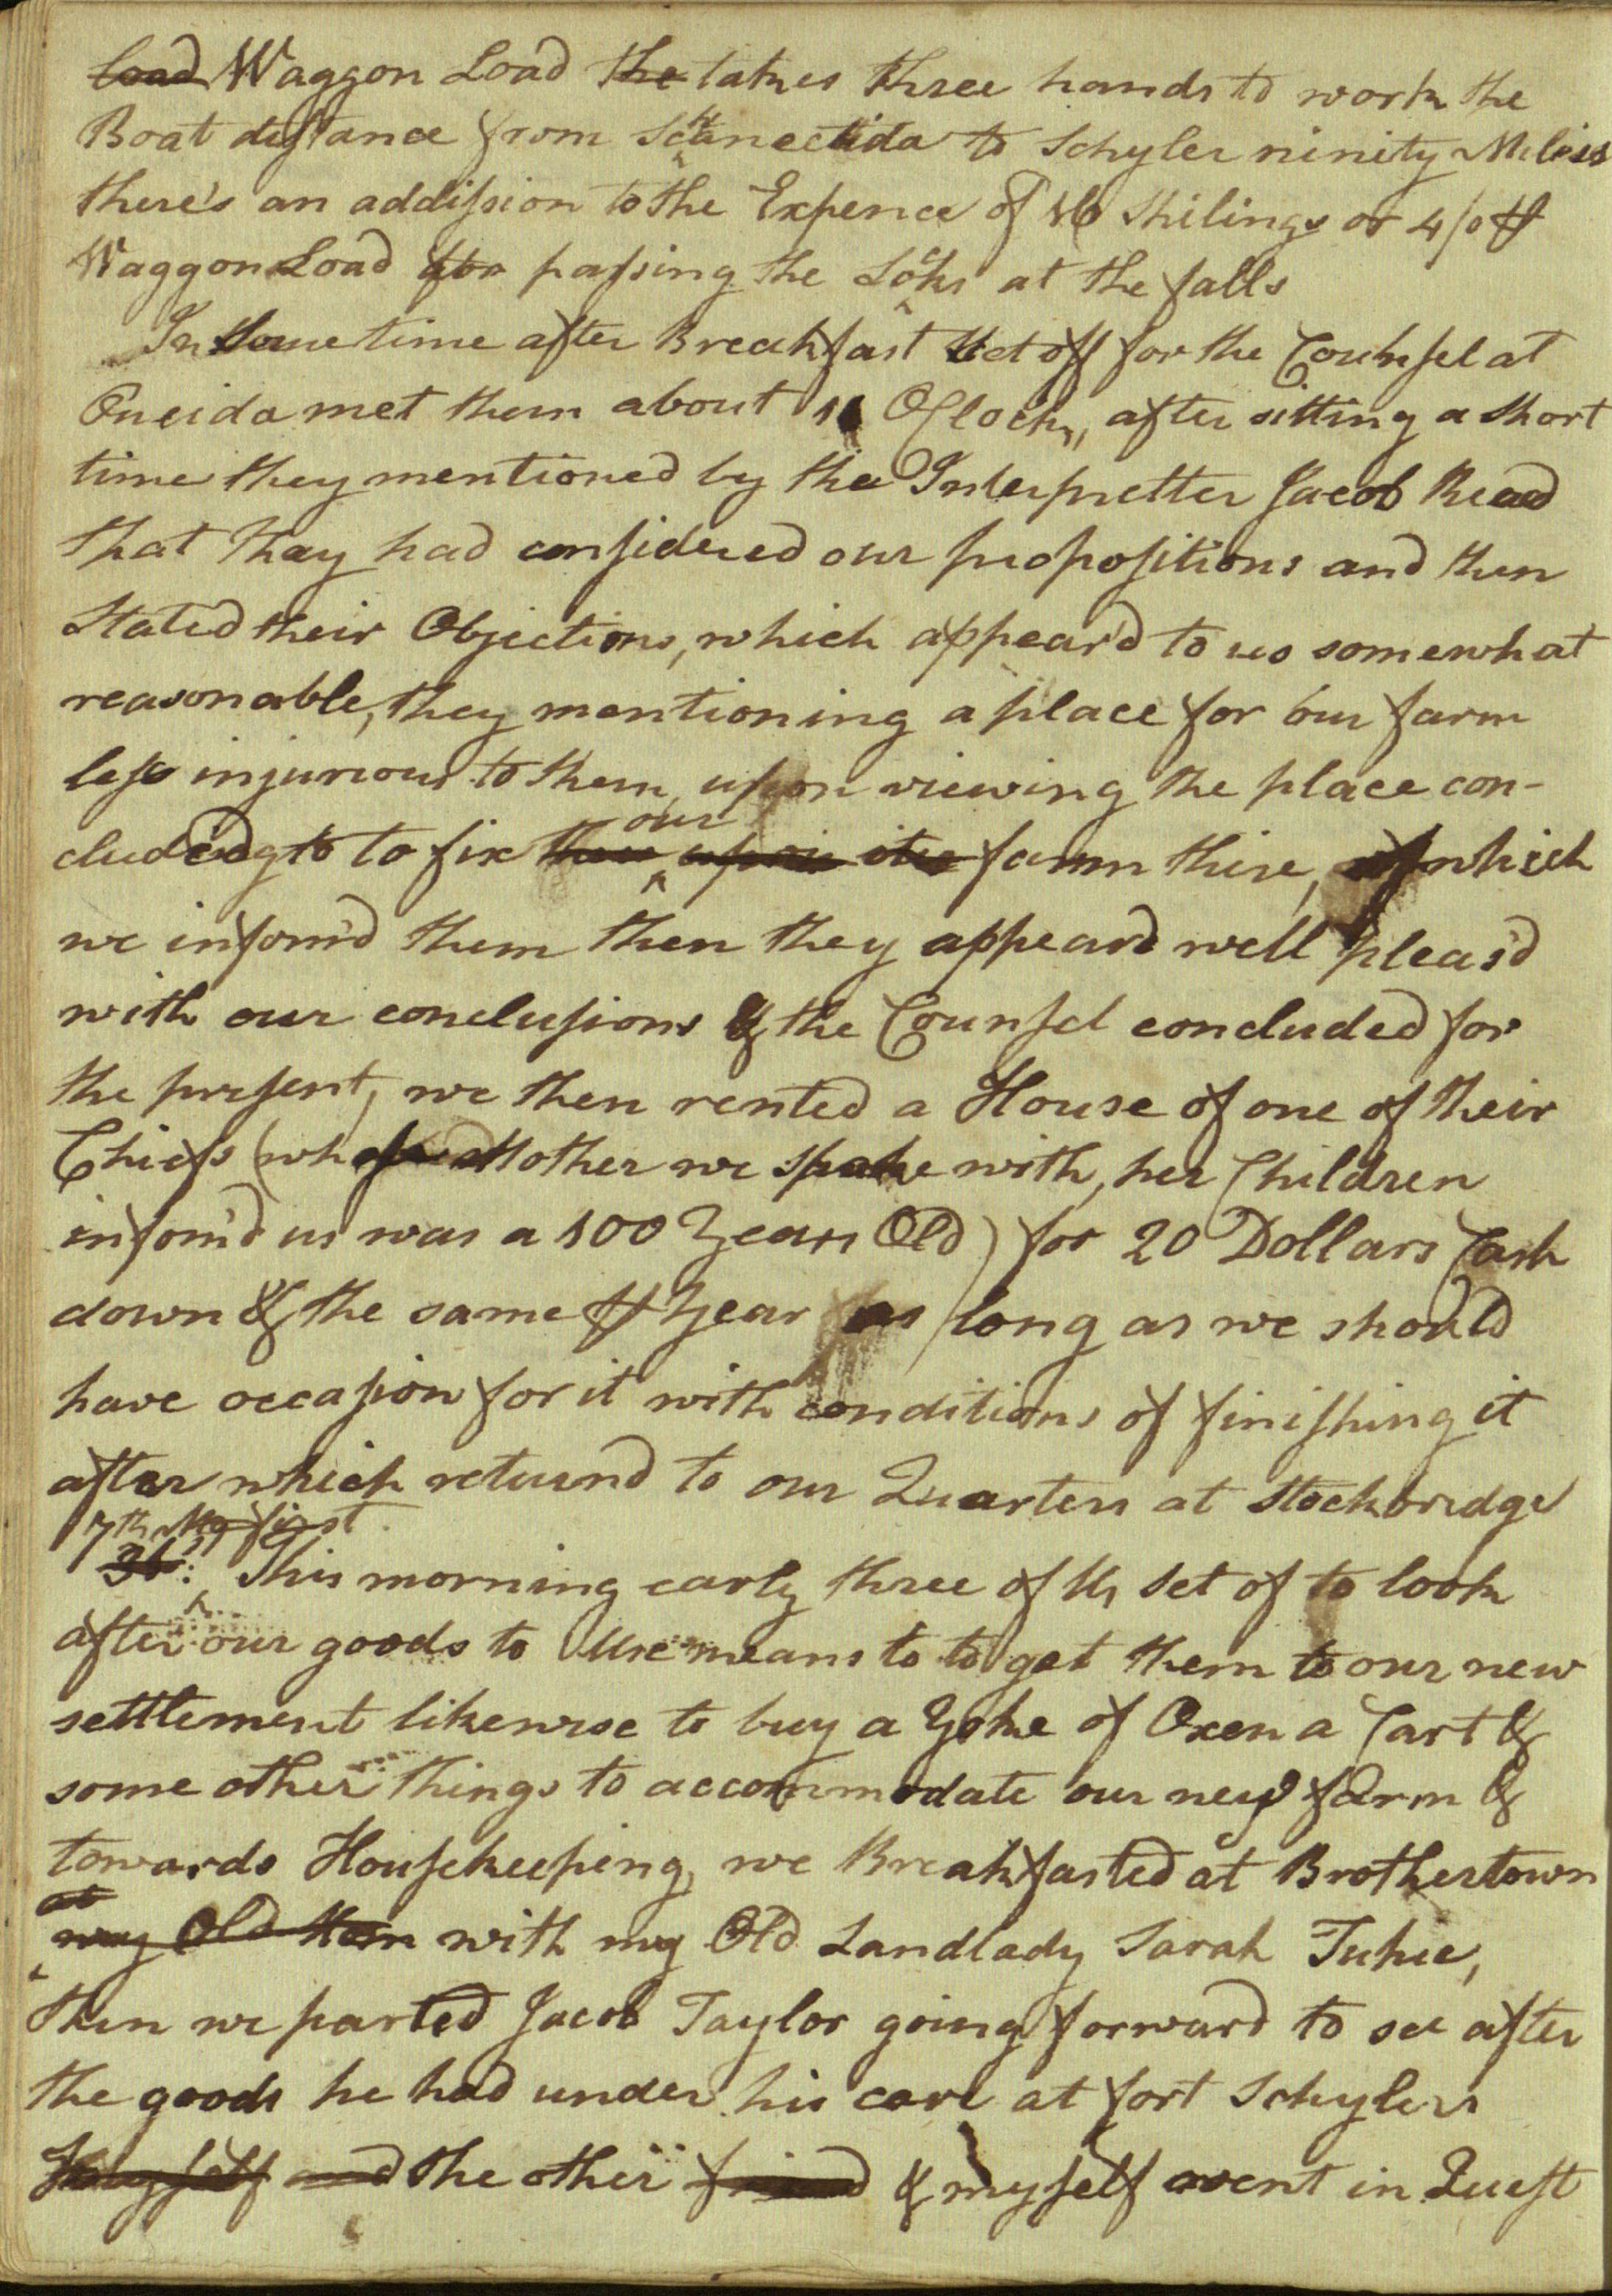 load Waggon Load the takes three hands to work the
Boat distance from Schanectida to Schyler ninity Miless
there's an addission to the Expence of 16 Shilings or 4/0 ₶
Waggon Load for passing the Locks at the falls
In Some time after Breakfast Set off for the Counsel at
Oneida met them about 11 OClock,, after sitting a Short
time they mentioned by the Interpretter Jacob Read
that they had considered our propositions and then
Stated their Objections, which appear'd to us somewhat
reasonable, they mentioning a place for our farm
less injurious to them, upon viewing the place con-
cluded to to fix our farm there, of which
we infom'd them then they appeard well pleas'd
with our conclusions & the Counsel concluded for
the present, we then rented a House of one of their
Chiefs (whose Mother we spake with, her Children
infom'd us was a 100 Years Old) for 20 Dollars Cash
down & the same ₶ Year as long as we should
have occasion for it with conditions of finishing it
after which returnd to our Quarters at Stockbridge
7th Mo first
31st: This morning early three of Us Set of to look
after our goods to Use means to to get them to our new
settlement likewise to buy a Yoke of Oxen a Cart &
some other things to accommodate our new farm &
towards Housekeeping, we Breakfasted at Brothertown
at
my Old with my Old Landlady Sarah Tuhie,
then we parted Jacob Taylor going forward to see after
the goods he had under his care at fort Schylers
myself and the other friend & myself went in Quest